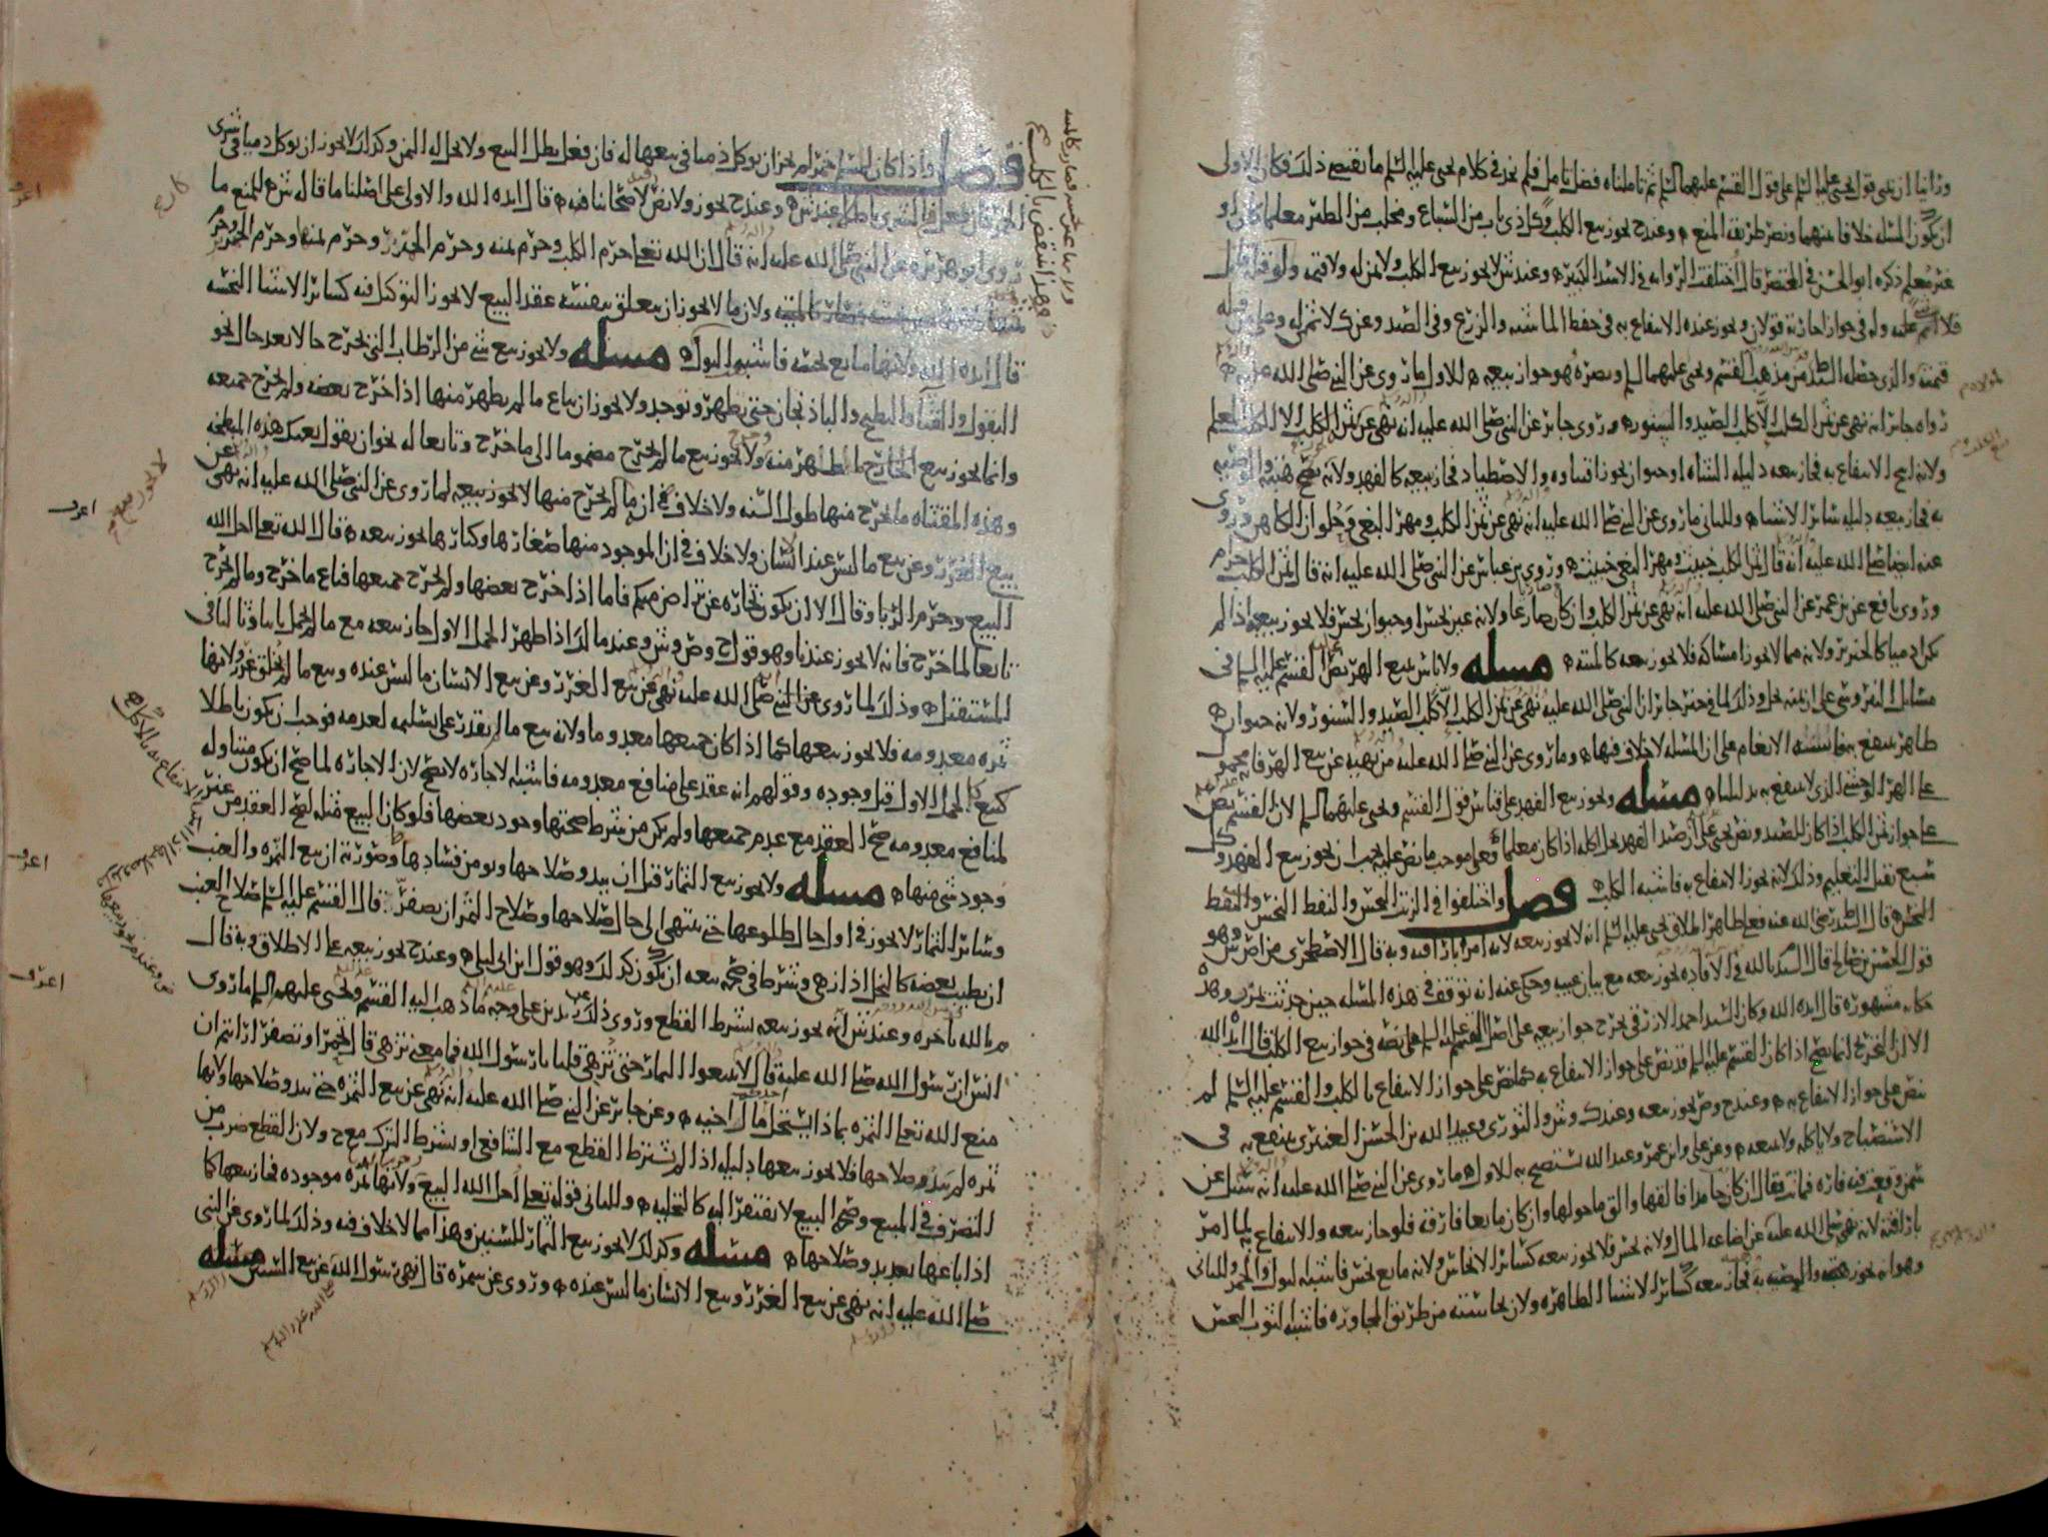 ورأينا ان نبني قول يحيى عليه السلم على قول القسم عليهما السلم ثم تأملناه فضل تامل فلم نجد في كلام يحيى عليه السلم ما يقتضي ذلك فكان الاولى
ان تكون المسله خلافا بينهما ونصر طريقة المنع وعند ح يجوز بيع الكلب وكل ذي ناب من السباع ومخلب من الطير معلما كان او
غير معلم ذكره ابو الحسن في المختصر قال اختلفت الروايه في الاسد الكبير وعند ش لا يجوز بيع الكلب ولا ثمن له ولا قيمه
فلا عليه وله في جواز اجارته قولان ويجوز عنده الانتفاع به في حفظ الماشيه والزرع وفي الصيد وعند ك لا ثمن له وعلى
قيمته والذي حصله من مذهب القسم ويحيى عليهما السلم ونصره هو جواز بيعه للاول ما روي عن النبي صلى الله عليه
رواه جابر انه نهى عن ثمن الكلب الا كلب الصيد والسنور وروى جابر عن النبي صلى الله عليه انه نهى عن ثمن الكلب الا الكلب المعلم
ولانه ابيح الانتفاع به فجاز بيعه دليله الشاه او حيوان يجوز اقتناوه والاصطياد فجاز بيعه كالفهد ولانه تصح هبته والوصيه
به فجاز بيعه دليله سائر الاشياء وللثاني ما روي عن النبي صلى الله عليه انه نهى عن ثمن الكلب ومهر البغي وحلوان الكاهن وروي
عنه ايضا صلى الله عليه انه قال ثمن الكلب خبيث ومهر البغي خبيث وروى بن عباس عن النبي صلى الله عليه انه قال ثمن الكلب حرام
وروى نافع عن بن عمر عن النبي صلى الله عليه انه نهى عن ثمن الكلب وان كان ضاريا ولانه عين نجس او حيوان نجس فلا يجوز بيعه اذا لم
يكن ادميا كالخنزير ولانه مما لا يجوز امساكه فلا يجوز بيعه كالميته مسله ولا باس ببيع الهر نص القسم عليه السلم في
مسائل على ان ثمنه حل وذلك لما في خبر جابر ان النبي صلى الله عليه نهى عن ثمن الكلب الا كلب الصيد والسنور ولانه حيوان
طاهر ينتفع به فاشبه الانعام على ان المسله لا خلاف فيها وما روي عن النبي صلى الله عليه من نهيه عن بيع الهر فانه محمول
على الهر الوحشي الذي لا ينتفع به بدليلنا مسله ويجوز بيع الفهد على قياس قول القسم ويحيى عليهما السلم لان القسم نص
على جواز ثمن الكلب اذا كان للصيد ونص يحيى على ان صيد الفهد يحل اكله اذا كان معلما فعلى موجب ما نص عليه يجب ان يجوز بيع الفهد وكل
سبع يقبل التعليم وذلك لانه يجوز الانتفاع به فاشبه الكلب فصل واختلفوا في الزيت النجس والنفط النجس
النجس قال رضي الله عنه فعلى ظاهر اطلاق يحيى عليه السلم انه لا يجوز بيعه لانه امر باراقته وبه قال الاصطخري من اص ش وهو
قول الحسن بن صالح قال السيد بالله في الافاده يجوز بيعه مع بيان عيبه وحكي عنه انه توقف في هذه المسله حين حدثت
حكايه مشهوره قال ايده الله وكان السيد احمد الازرقي يخرج جواز بيعه على اصل القسم عليه السلم على نصه في جواز بيع الكلب قال ايده الله
الا ان التخريج انما يصح اذا كان القسم عليه السلم قد نص على جواز الانتفاع به كما نص على جواز الانتفاع بالكلب والقسم عليه السلم لم
ينص على جواز الانتفاع به وعند ح وص يجوز بيعه وعند ك وش والثوري وعبيد الله بن الحسن العنبري ينتفع به في
الاستصباح ولا ياكله ولا يبيعه وعن علي وابن عمر وعبد الله يستصبح به للاول ما روي عن النبي صلى الله عليه انه سئل عن
سمن وقعت فيه فاره فماتت فقال ان كان جامدا فالقها والق ما حولها وان كان مايعا فارقه فلو جاز بيعه والانتفاع به لما امر
باراقته لانه نهى صلى الله عليه عن اضاعه المال ولانه نجس فلا يجوز بيعه كسائر الانجاس ولانه مايع نجس فاشبه البول والخمر وللثاني
وهو انه يجوز هبته والوصيه به فجاز بيعه كسائر الاشياء الطاهره ولان نجاسته من طريق المجاوره فاشبه الثوب النجس
فصل واذا كان لمسلم خمر لم يجز ان يوكل ذميا في بيعها له فان فعل بطل البيع ولا يحل له الثمن وكذلك لا يجوز ان يوكل ذميا في شرى
الخمر فان فعل فالشرى باطل عند ش وعند ح يجوز ولا نص لاصحابنا فيه قال ايده الله والاولى على اصلنا ما قاله ش من المنع ما
روى ابو هريره عن النبي صلى الله عليه انه قال ان الله تعالى حرم الكلب وحرم ثمنه وحرم الخنزير وحرم ثمنه وحرم الخمر وحرم
ولان ما لا يجوز ان يتعلق بنفسه عقد البيع لا يجوز التوكيل فيه كسائر الاشياء النجسه
قال ايده الله ولانها مايع نجسه فاشبه البول مسله ولا يجوز بيع شي من الرطاب التي تخرج حالا بعد حال نحو
البقول والقثا والبطيخ والباذنجان حتى يظهر ويوجد ولا يجوز ان يباع ما لم يظهر منها اذا خرج بعضه ولم يخرج جميعه
وانما يجوز بيع الخارج الظاهر منه ولا يجوز بيع ما لم يخرج مضموما الى ما خرج وتابعا له نحو ان يقول بعتك هذه المبطخه
وهذه المقثاه ما يخرج منها طول السنه ولا خلاف في ان ما لم يخرج منها لا يجوز بيعه لما روي عن النبي صلى الله عليه انه نهى عن
بيع الغرر وعن بيع ما ليس عند الانسان ولا خلاف في ان الموجود منها صغارها وكبارها يجوز بيعه قال الله تعالى احل الله
البيع وحرم الربا وقال الا ان تكون تجاره عن تراض منكم فاما اذا خرج بعضها ولم يخرج جميعها فباع ما خرج وما لم يخرج
تابعا لما خرج فانه لا يجوز عندنا وهو قول ح وص وش وعند مالك اذا ظهر الحمل الاول جاز بيعه مع ما لم يحمل ثانيا وثالثا في
المستقبل وذلك لما روي عن النبي صلى الله عليه نهى عن بيع الغرر وعن بيع الانسان ما ليس عنده وبيع ما لم يخلق غرر ولانها
ثمره معدومه فلا يجوز بيعها كما اذا كان جميعها معدوما ولانه بيع ما لا يقدر على تسليمه لعدمه فوجب ان يكون باطلا
كبيع الحمل الاول قبل وجوده وقولهم انه عقد على منافع معدومه فاشبه الاجاره لا يصح لان الاجاره لما صح ان يكون متناوله
لمنافع معدومه صح العقد مع عدم جميعها ولم يكن من شرط صحتها وجود بعضها فلو كان البيع مثله لصح العقد من غير
وجود شي منها مسله ولا يجوز بيع الثمار قبل ان يبدو صلاحها ويومن فسادها وصورته ان بيع التمره والعنب
وسائر الثمار لا يجوز في اول حال طلوعها حتى ينتهي الى حال صلاحها وصلاح التمر ان يصفر قال القسم عليه السلم صلاح العنب
ان يطيب بعضه كالنخل اذا زهى وشرط في صحه بيعه ان تكون كذلك وهو قول ابن ابي ليلى وعند ح يجوز بيعه على الاطلاق وبه قال
م بالله باخره وعند ش انه يجوز بيعه بشرط القطع وروي ذلك عن زيد بن علي وجه ما ذهب اليه القسم ويحيى عليهما السلم ما روى
انس ان رسول الله صلى الله عليه قال لا تبيعوا الثمار حتى تزهي قلنا يا رسول الله فما معنى تزهي قال تحمر او تصفر ارايتم ان
منع الله تعالى الثمره بماذا يستحل مال اخيه وعن جابر عن النبي صلى الله عليه انه نهى عن بيع الثمره حتى يبدو صلاحها ولانها
ثمره لم يبد صلاحها فلا يجوز بيعها دليله اذا لم يشترط القطع مع الشافعي او بشرط الترك مع ح ولان القطع ضرب من
التصرف في المبيع وصحه البيع لا تفتقر اليه كالتخليه وللثاني قوله تعالى احل الله البيع ولانها ثمره موجوده فجاز بيعها كما
اذا باعها بعد بدو صلاحها مسله وكذلك لا يجوز بيع الثمار للسنين وهذا مما لا خلاف فيه وذلك لما روي عن النبي
صلى الله عليه انه نهى عن بيع الغرر وبيع الانسان ما ليس عنده وروي عن سمره قال نهى رسول الله عن بيع السنين مسله